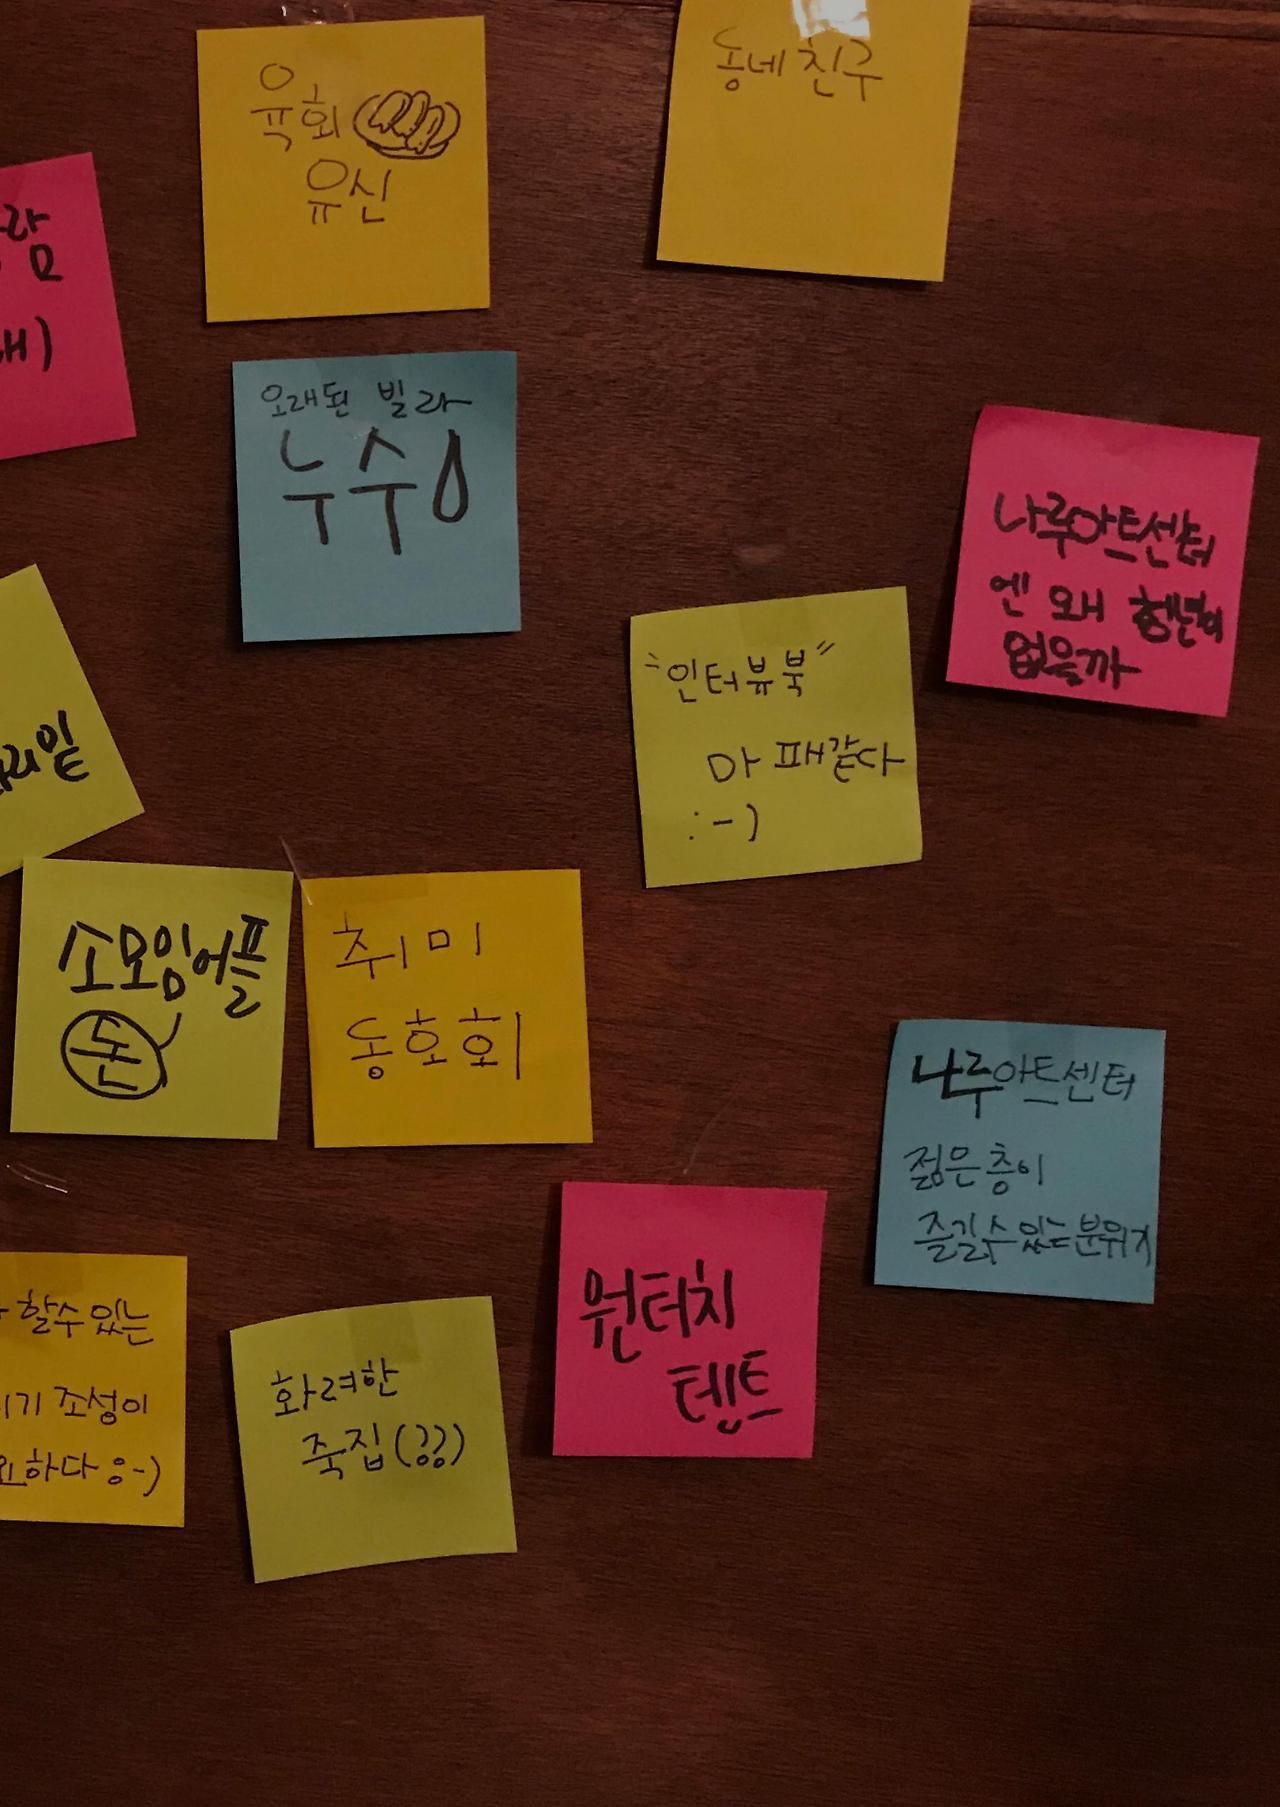 육회
유신
동네 친구
람
오래된 빌라
누수
나루아트센터
엔 왜 청년이
없을까
"인터뷰북"
마패같다
:-)
소모임어플
돈
취미
동호회
나루아트센터
젊은층이
즐길수있는분위기
원터치
텐트
할수있는
기 조성이
하다 :-)
화려한
죽집(??)